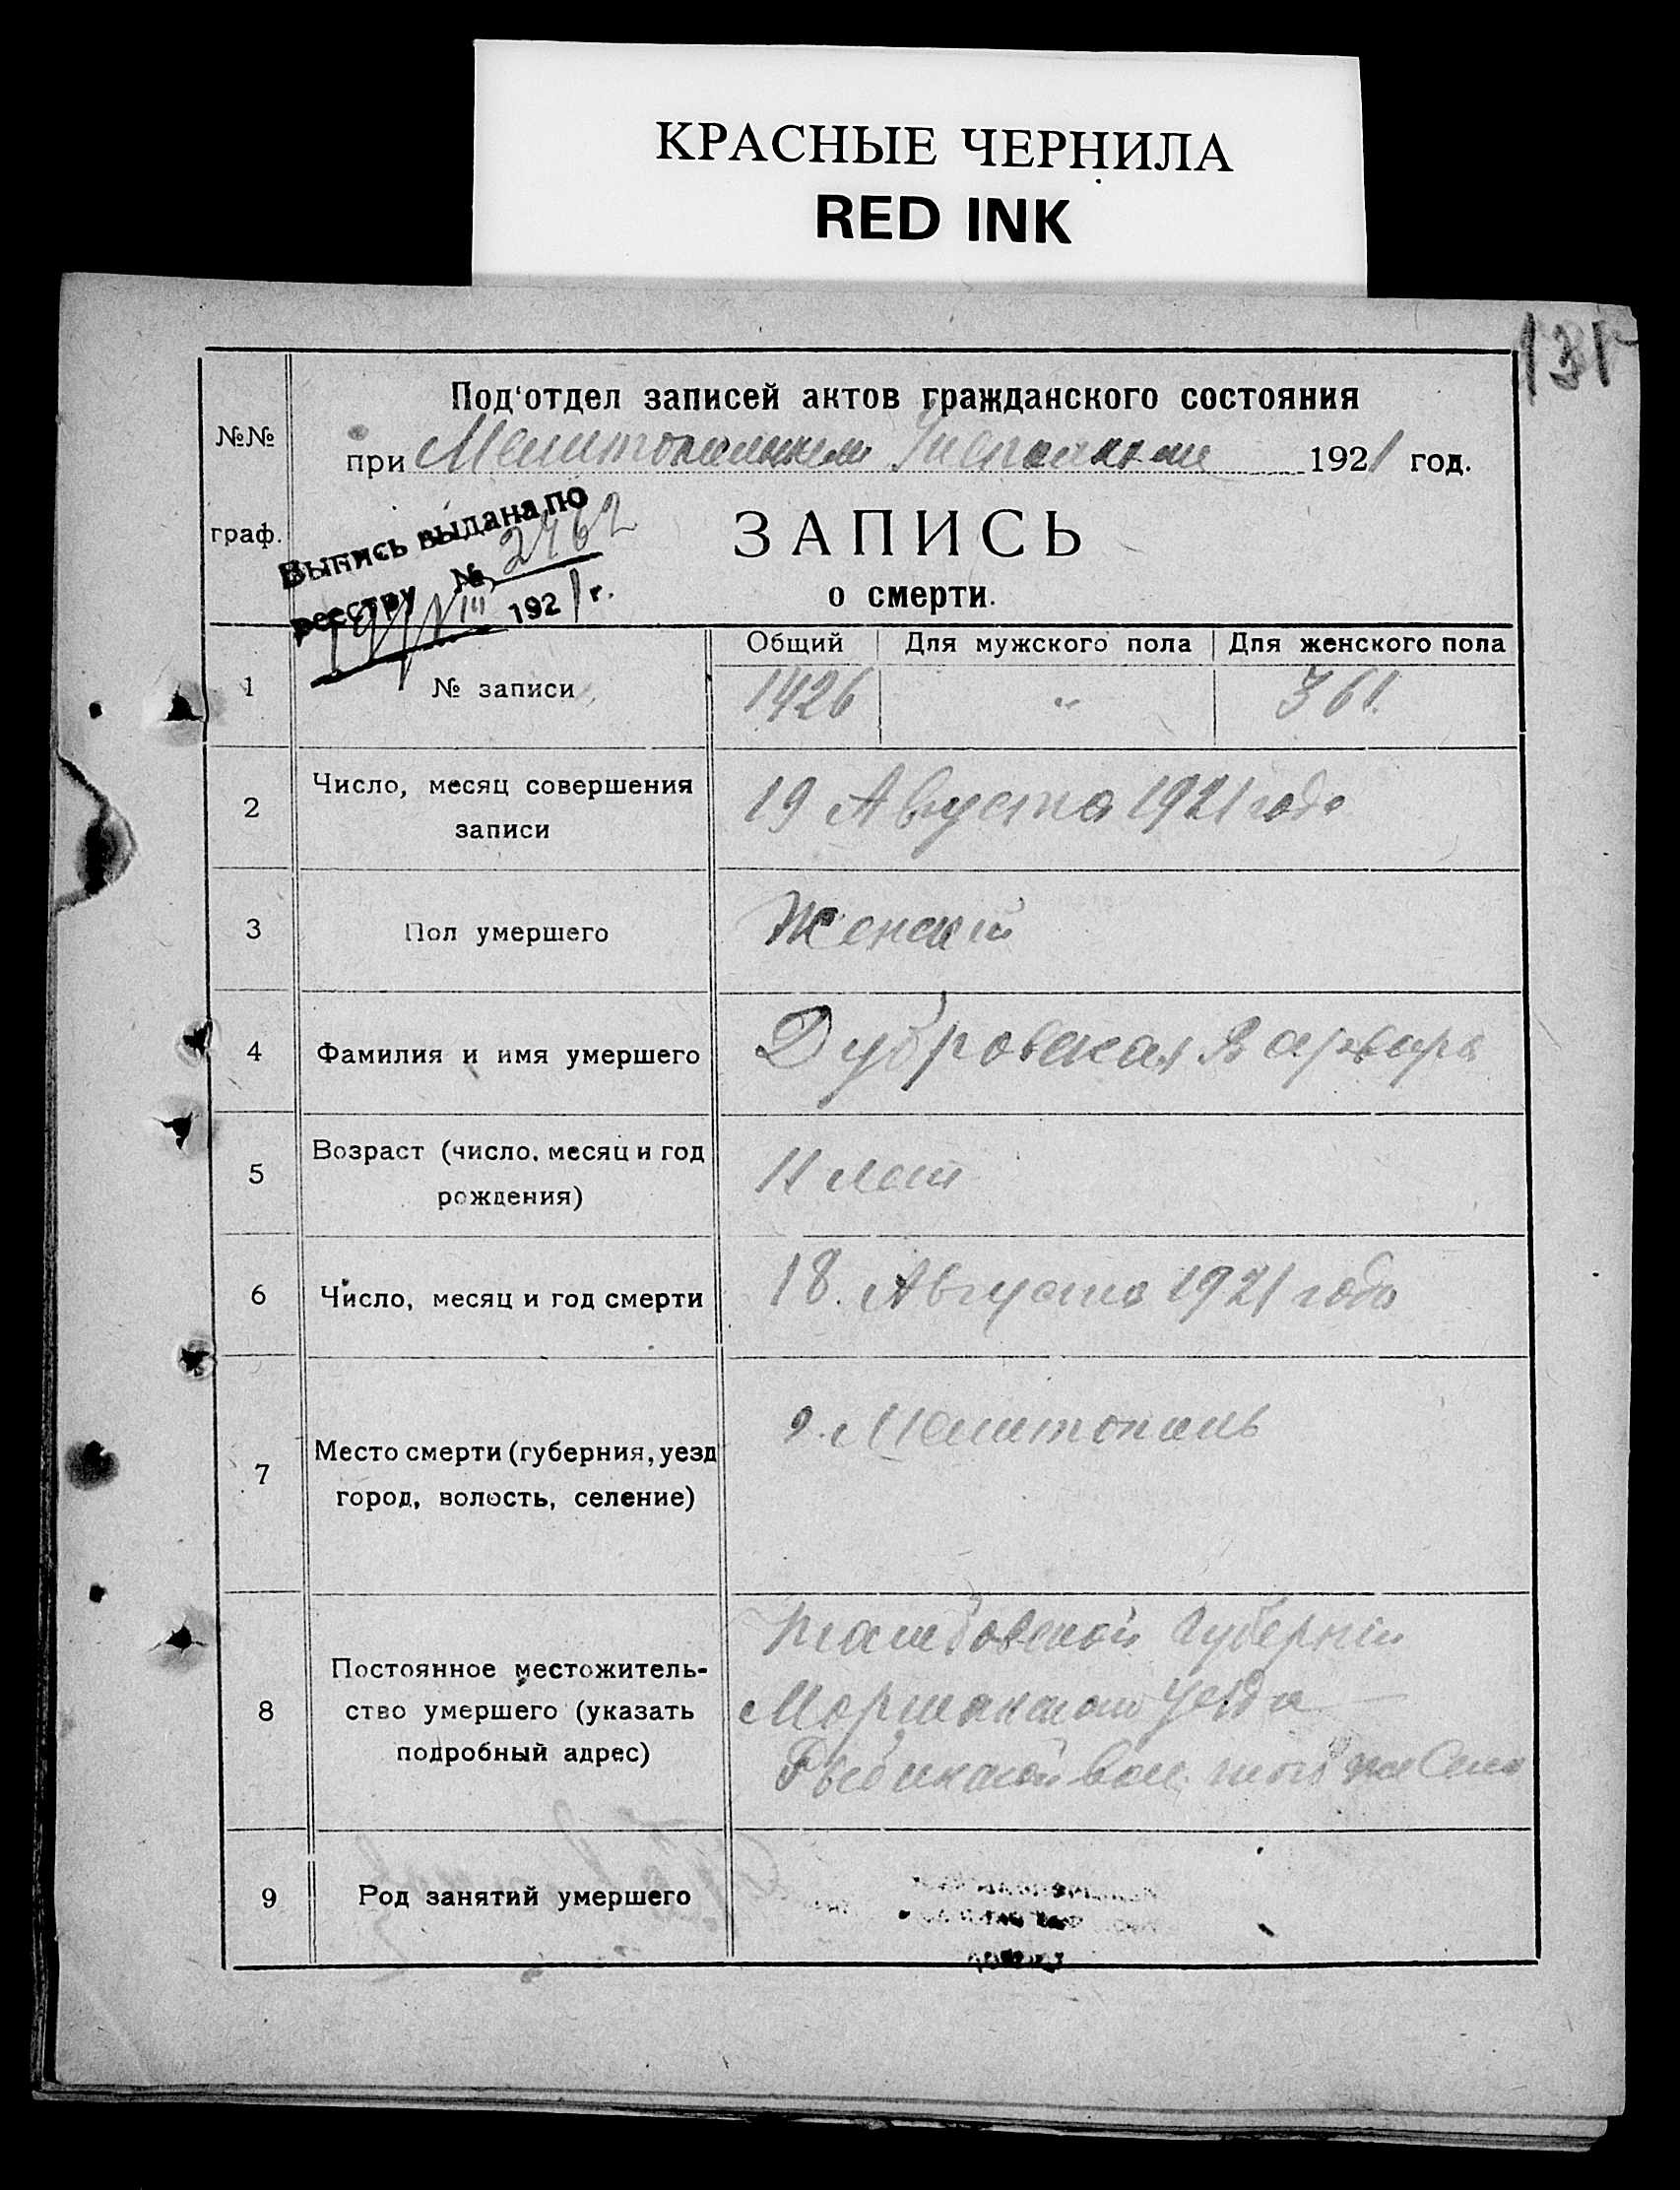 КРАСНЫЕ ЧЕРНИЛА
RED INK
131
№№
граф.
Под'отдел записей актов гражданского состояния
при Мелитопольском 1921 год.
Выпись выдана по
реестру № 2462
19/VIII 1921 г.
ЗАПИСЬ
о смерти.
Общий Для мужского пола Для женского пола
1 № записи 1426 " 361.
2 Число, месяц совершения
записи
19 Августа 1921 года
3 Пол умершего Женский
4 Фамилия и имя умершего Дубровская Варвара
5 Возраст (число, месяц и год
рождения)
11 лет
6 Число, месяц и год смерти 18. Августа 1921 года
7 Место смерти (губерния, уезд
город, волость, селение)
г. Мелитополь
8 Постоянное местожитель-
ство умершего (указать
подробный адрес)
Тамбовской Губернии
Моршанского уезда
вол. той же Села
9 Род занятий умершего